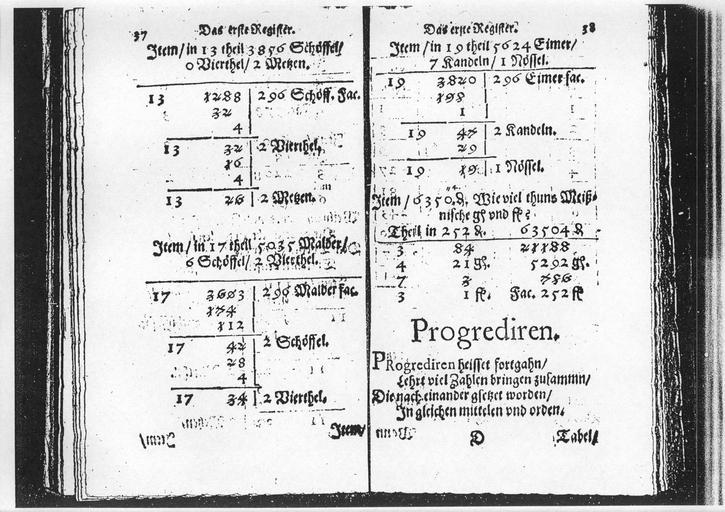 37 Das erste Register.
Item/ in 13 theil 3856 Schöffel/
0 Vierthel/ 2 Metzen.
13 1288 296 Schöff. Fac.
32
4
13 32 2 Vierthel.
16
4
13 26 2 Metzen.
Item/ in 17 theil 5035 Malder/
6 Schöffel/ 2 Vierthel.
17 3603 296 Malder fac.
174
112
17 42 2 Schöffel.
28
4
17 34 2 Vierthel.
Item/
Das erste Register. 38
Item/ in 19 theil 5624 Eimer/
7 Kandeln/ 1 Nössel.
19 3820 296 Eimer fac.
198
1
19 47 2 Kandeln.
29
19 19 1 Nössel.
Item/ Wie viel thuns Meiß-
nische gl vnd fl?
Theil in 252 63504
3 84 21188
4 21 gl. 5292 gl.
7 3 756
3 1 fl. Fac. 252 fl
Progrediren.
PRogrediren heisset fortgahn/
Lehrt viel Zahlen bringen zusammn/
Die nach einander gsetzet worden/
In gleichen mittelen vnd orden.
D Tabel/